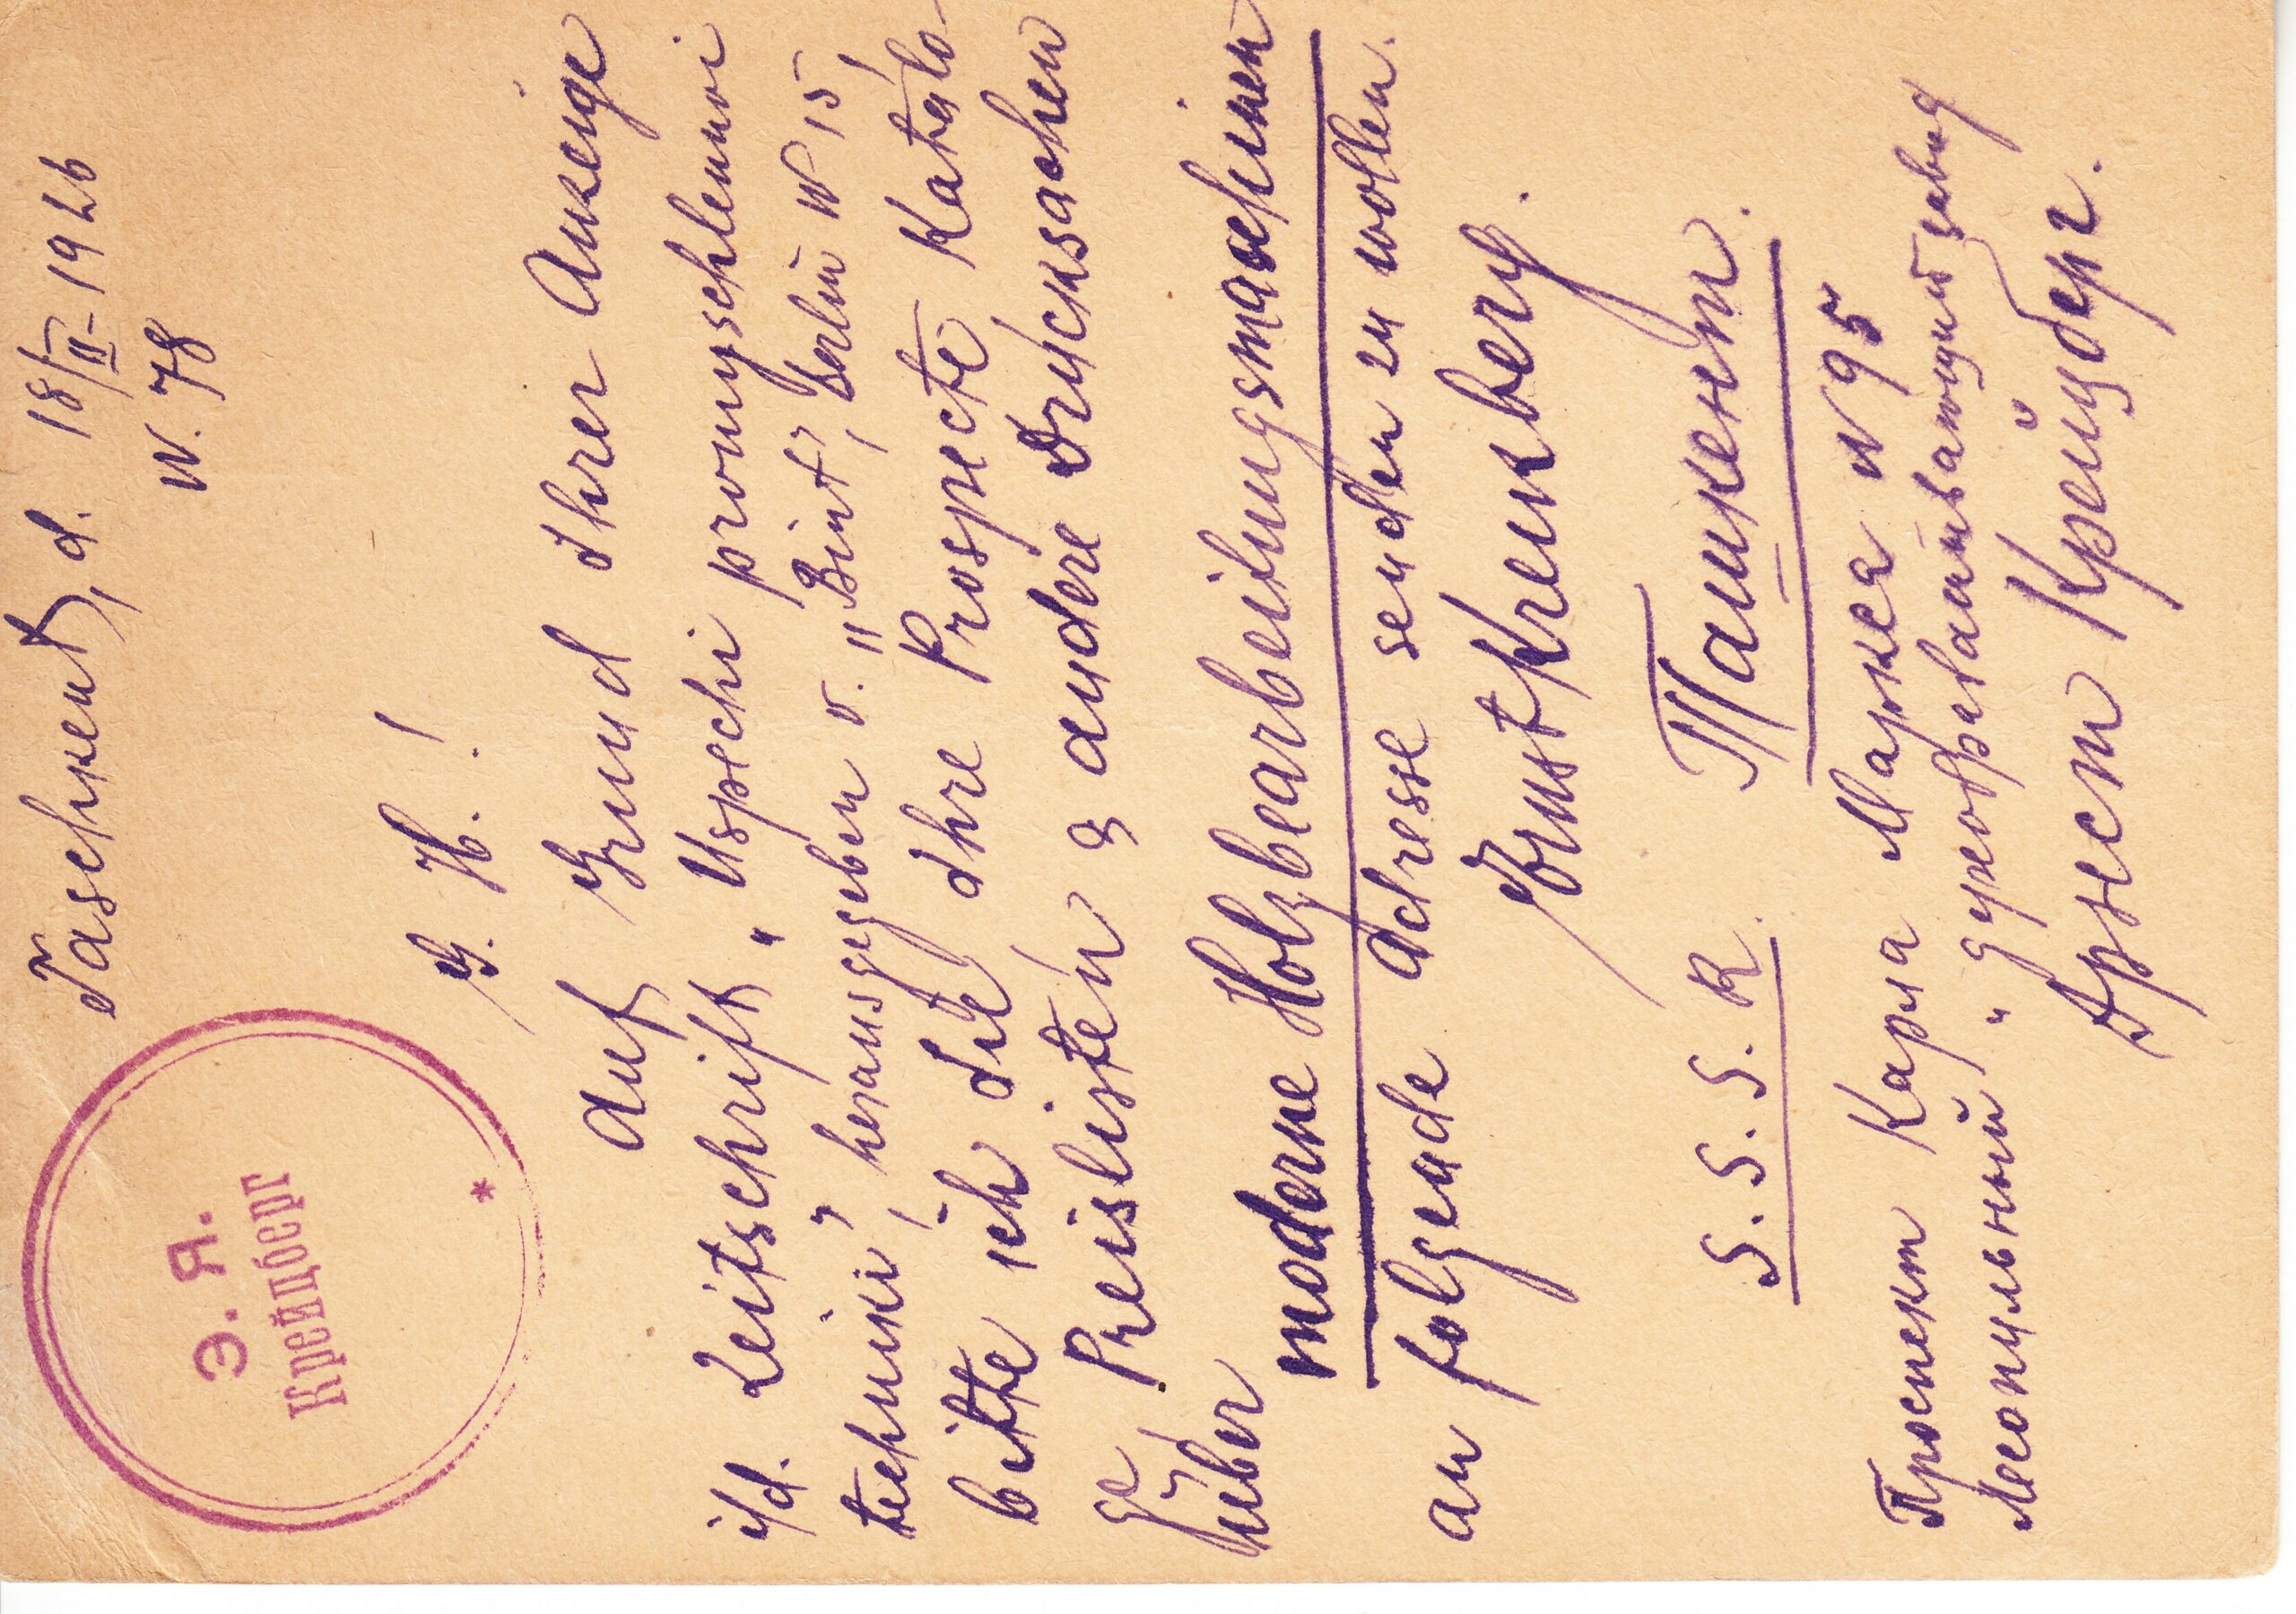 Э. Я.
Крейцберг
Taschkent, d. 18/II-1926
N. 78
G. H.!
Auf Grund Ihrer Anzeige
i/d. Zeitschrift „Uspechi promyschlennoi
techniki", herausgegeben v. "Bint", Berlin W 15,
bitte ich Sie Ihre Prospecte, Katalo-
ge, Preislisten & andere Drucksachen
über moderne Holzbearbeitungsmaschinen
an folgende Adresse senden zu wollen.
Ernst Kreuzberg.
S. S. S. R. Ташкент.
Проспект Карла Маркса N 95
Лесопильный „деревообделочный завод
Арнст Крейцберг.